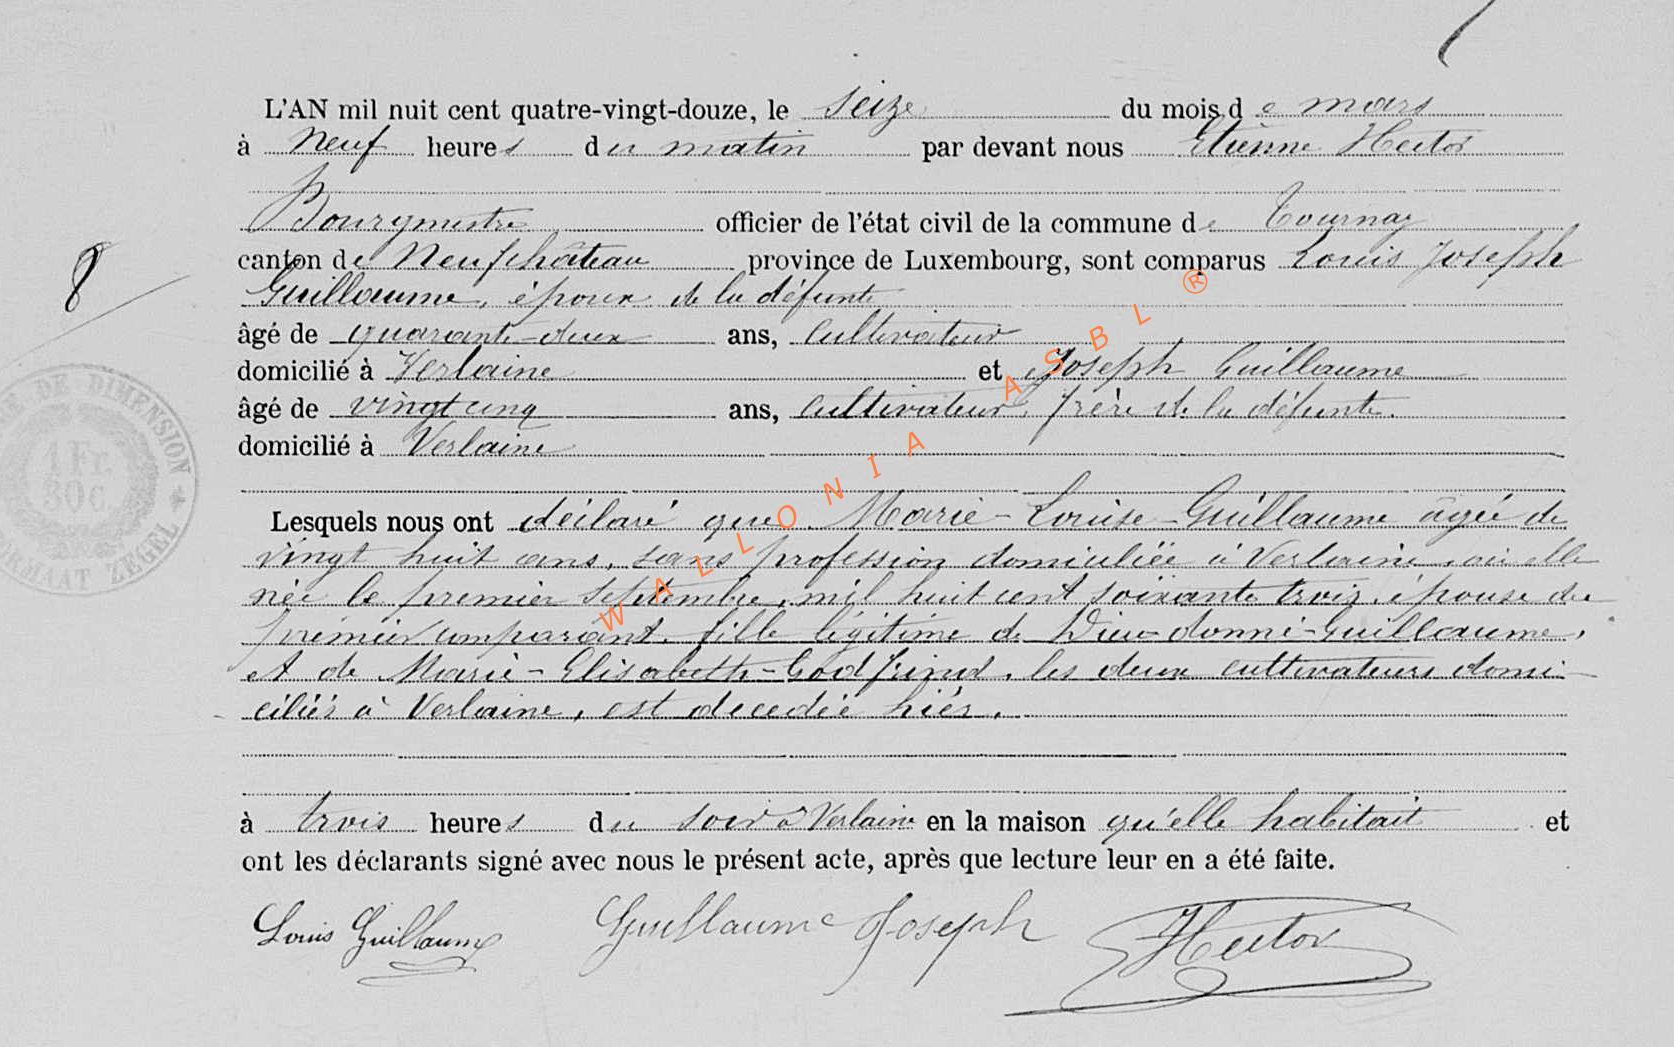 L'AN mil nuit cent quatre-vingt-douze, le seize du mois de mars
à neuf heures du matin par devant nous Etienne Hector
Bourgmestre officier de l'état civil de la commune de Tournay
canton de Neufchâteau province de Luxembourg, sont comparus Louis Joseph
Guillaume, époux de la défunte
âgé de quarante-deux ans, cultivateur
domicilié à Verlaine et Joseph Guillaume
âgé de vingt cinq ans, cultivateur, frère de la défunte.
domicilié à Verlaine
8
Lesquels nous ont déclaré que Marie-Louise-Guillaume âgée de
vingt huit ans, sans profession domiciliée à Verlaine, où elle
née le premier septembre, mil huit cent soixante trois, épouse du
premier comparant, fille légitime de Dieu donné-Guillaume,
et de Marie-Elisabeth-Godfrind, les deux cultivateurs domi-
ciliés à Verlaine, est décédée hier.
à trois heures du soir à Verlaine en la maison qu'elle habitait et
ont les déclarants signé avec nous le présent acte, après que lecture leur en a été faite.
Louis Guillaume Guillaume Joseph Hector
DE DIMENSION
1 Fr.
30 c.
FORMAAT ZEGEL
WALLONIA ASBL ®